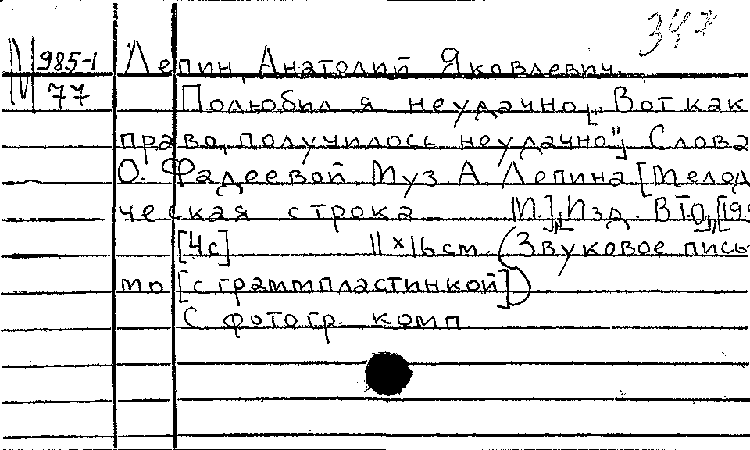 347
М 985-1 Лепин, Анатолий Яковлевич.
77 Полюбил я неудачно[„ Вот как
право, получилось неудачно"] Слова
О. Фадеевой Муз А Лепина [Мелод
ческая строка М.], „Изд. ВТО„, [19
[4с] 11×16 см (Звуковое пись
мо [с граммпластинкой])
С фотогр. комп